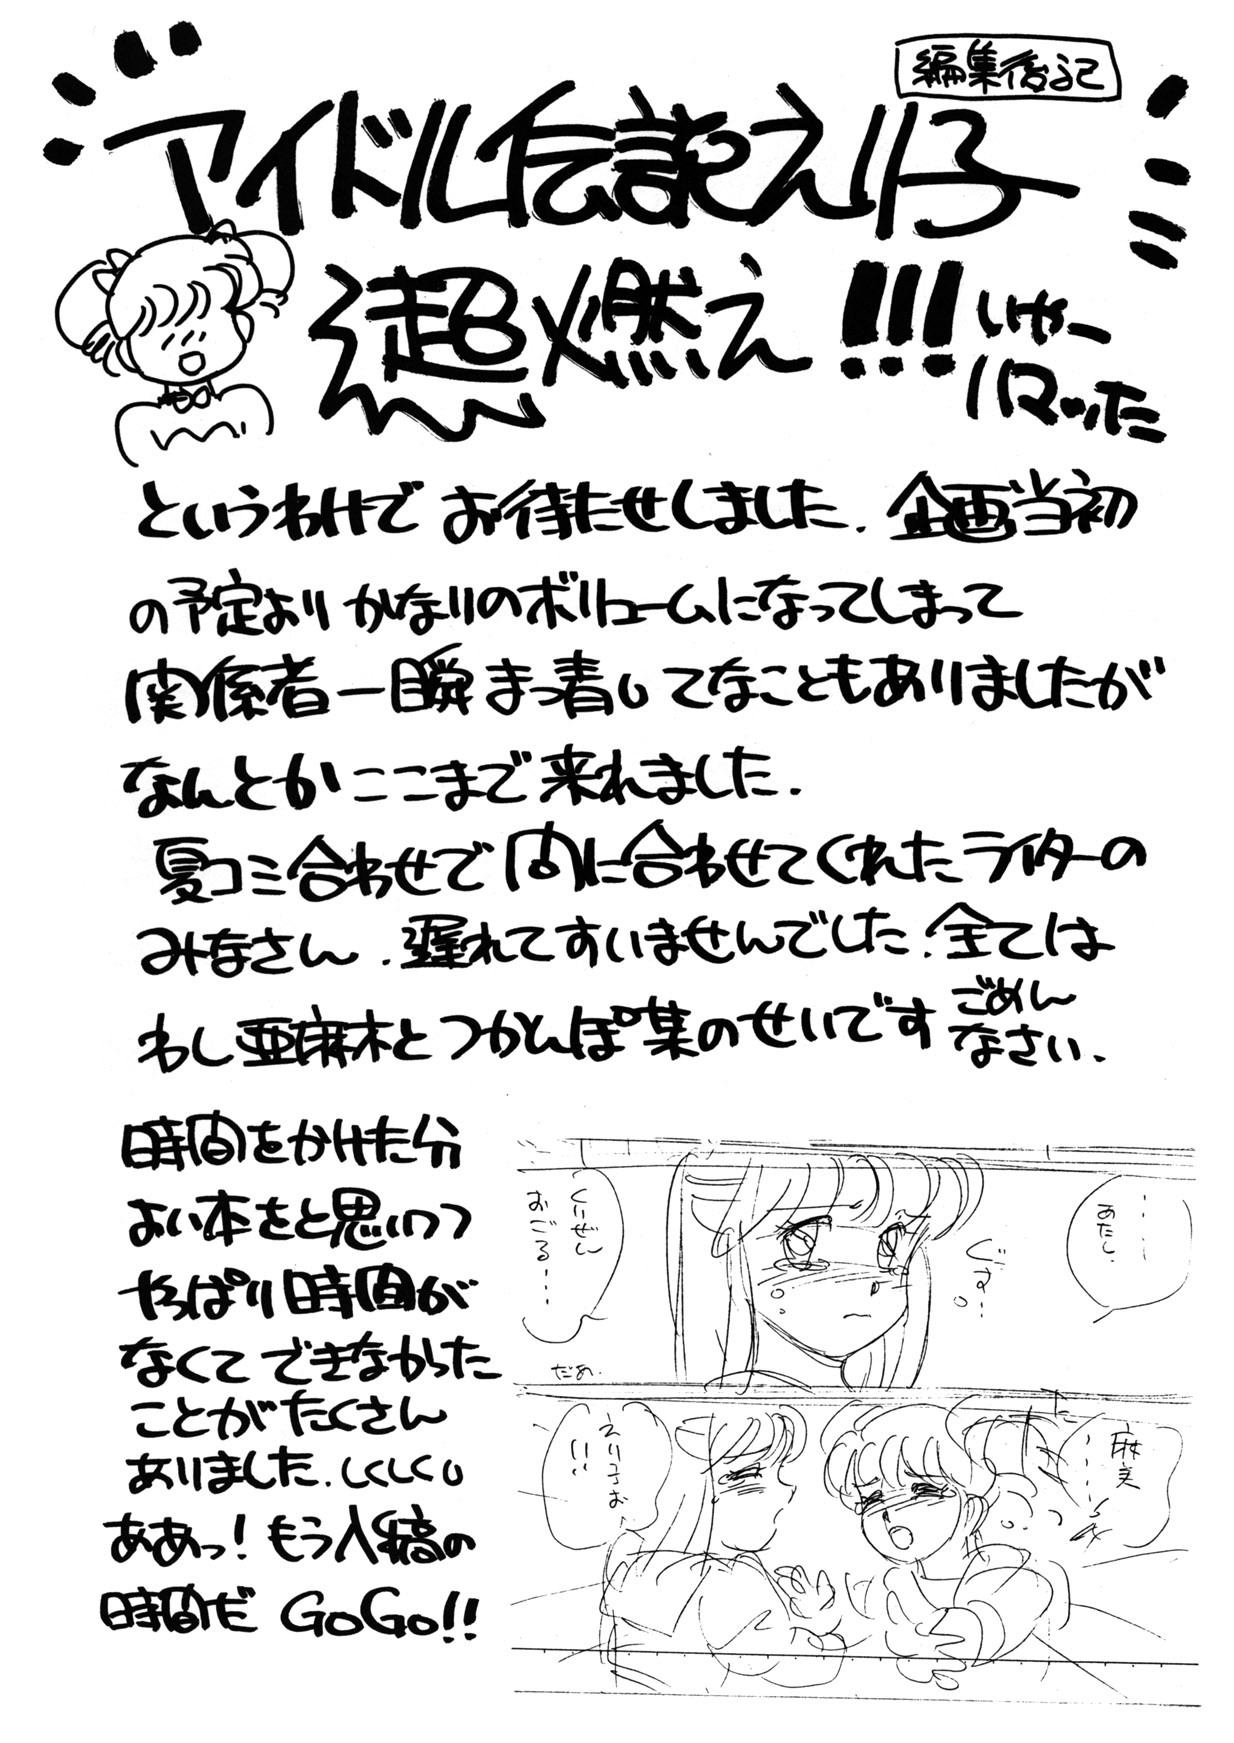 編集後記
アイドル伝説えり子
超燃え!!!いやー
ハマッた
というわけでお待たせしました.企画当初
の予定よりかなりのボリュームになってしまって
関係者一瞬まっ青してなこともありましたが
なんとかここまで来れました.
夏コミ合わせで間に合わせてくれたライターの
みなさん.遅れてすいませんでした.全ては
わし亜麻木とつかんぽ葉のせいですごめん
なさい.
時間をかけた分
よい本をと思いつつ
やっぱり時間が
なくてできなかった
ことがたくさん
ありました.しくしくし
ああっ!もう入稿の
時間だ GoGo!!
……
あたし、
ぐす…
おごる…
だめ.
麻美
えり子お
!!